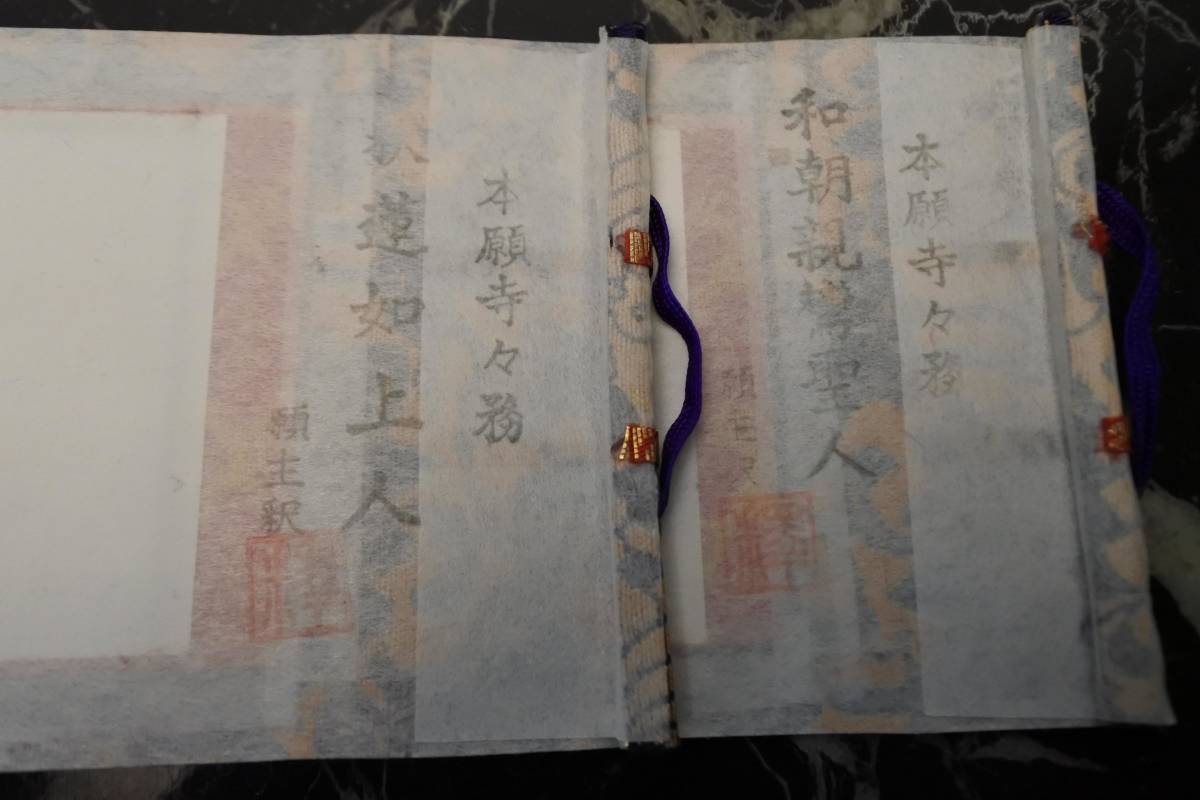 本願寺々務
和朝親鸞聖人
願主釈
本願寺々務
蓮如上人
願主釈